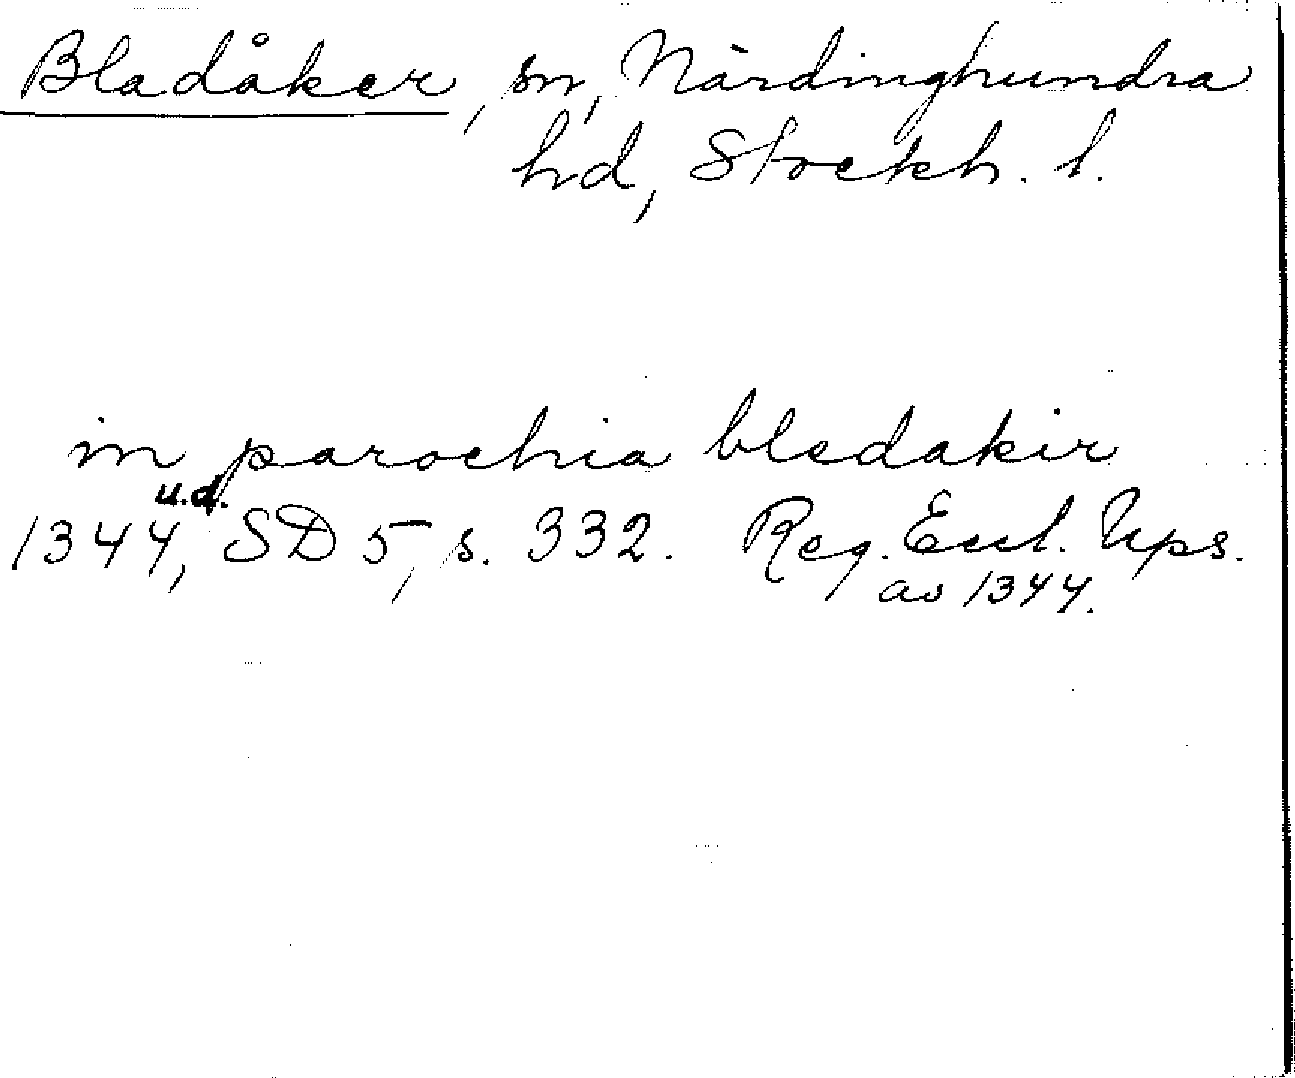 Bladåker, sn, Närdinghundra
hd, Stockh. l.
in parochia bledakir
1344 u.d., SD 5, s. 332. Reg. Eccl. Ups.
av 1344.